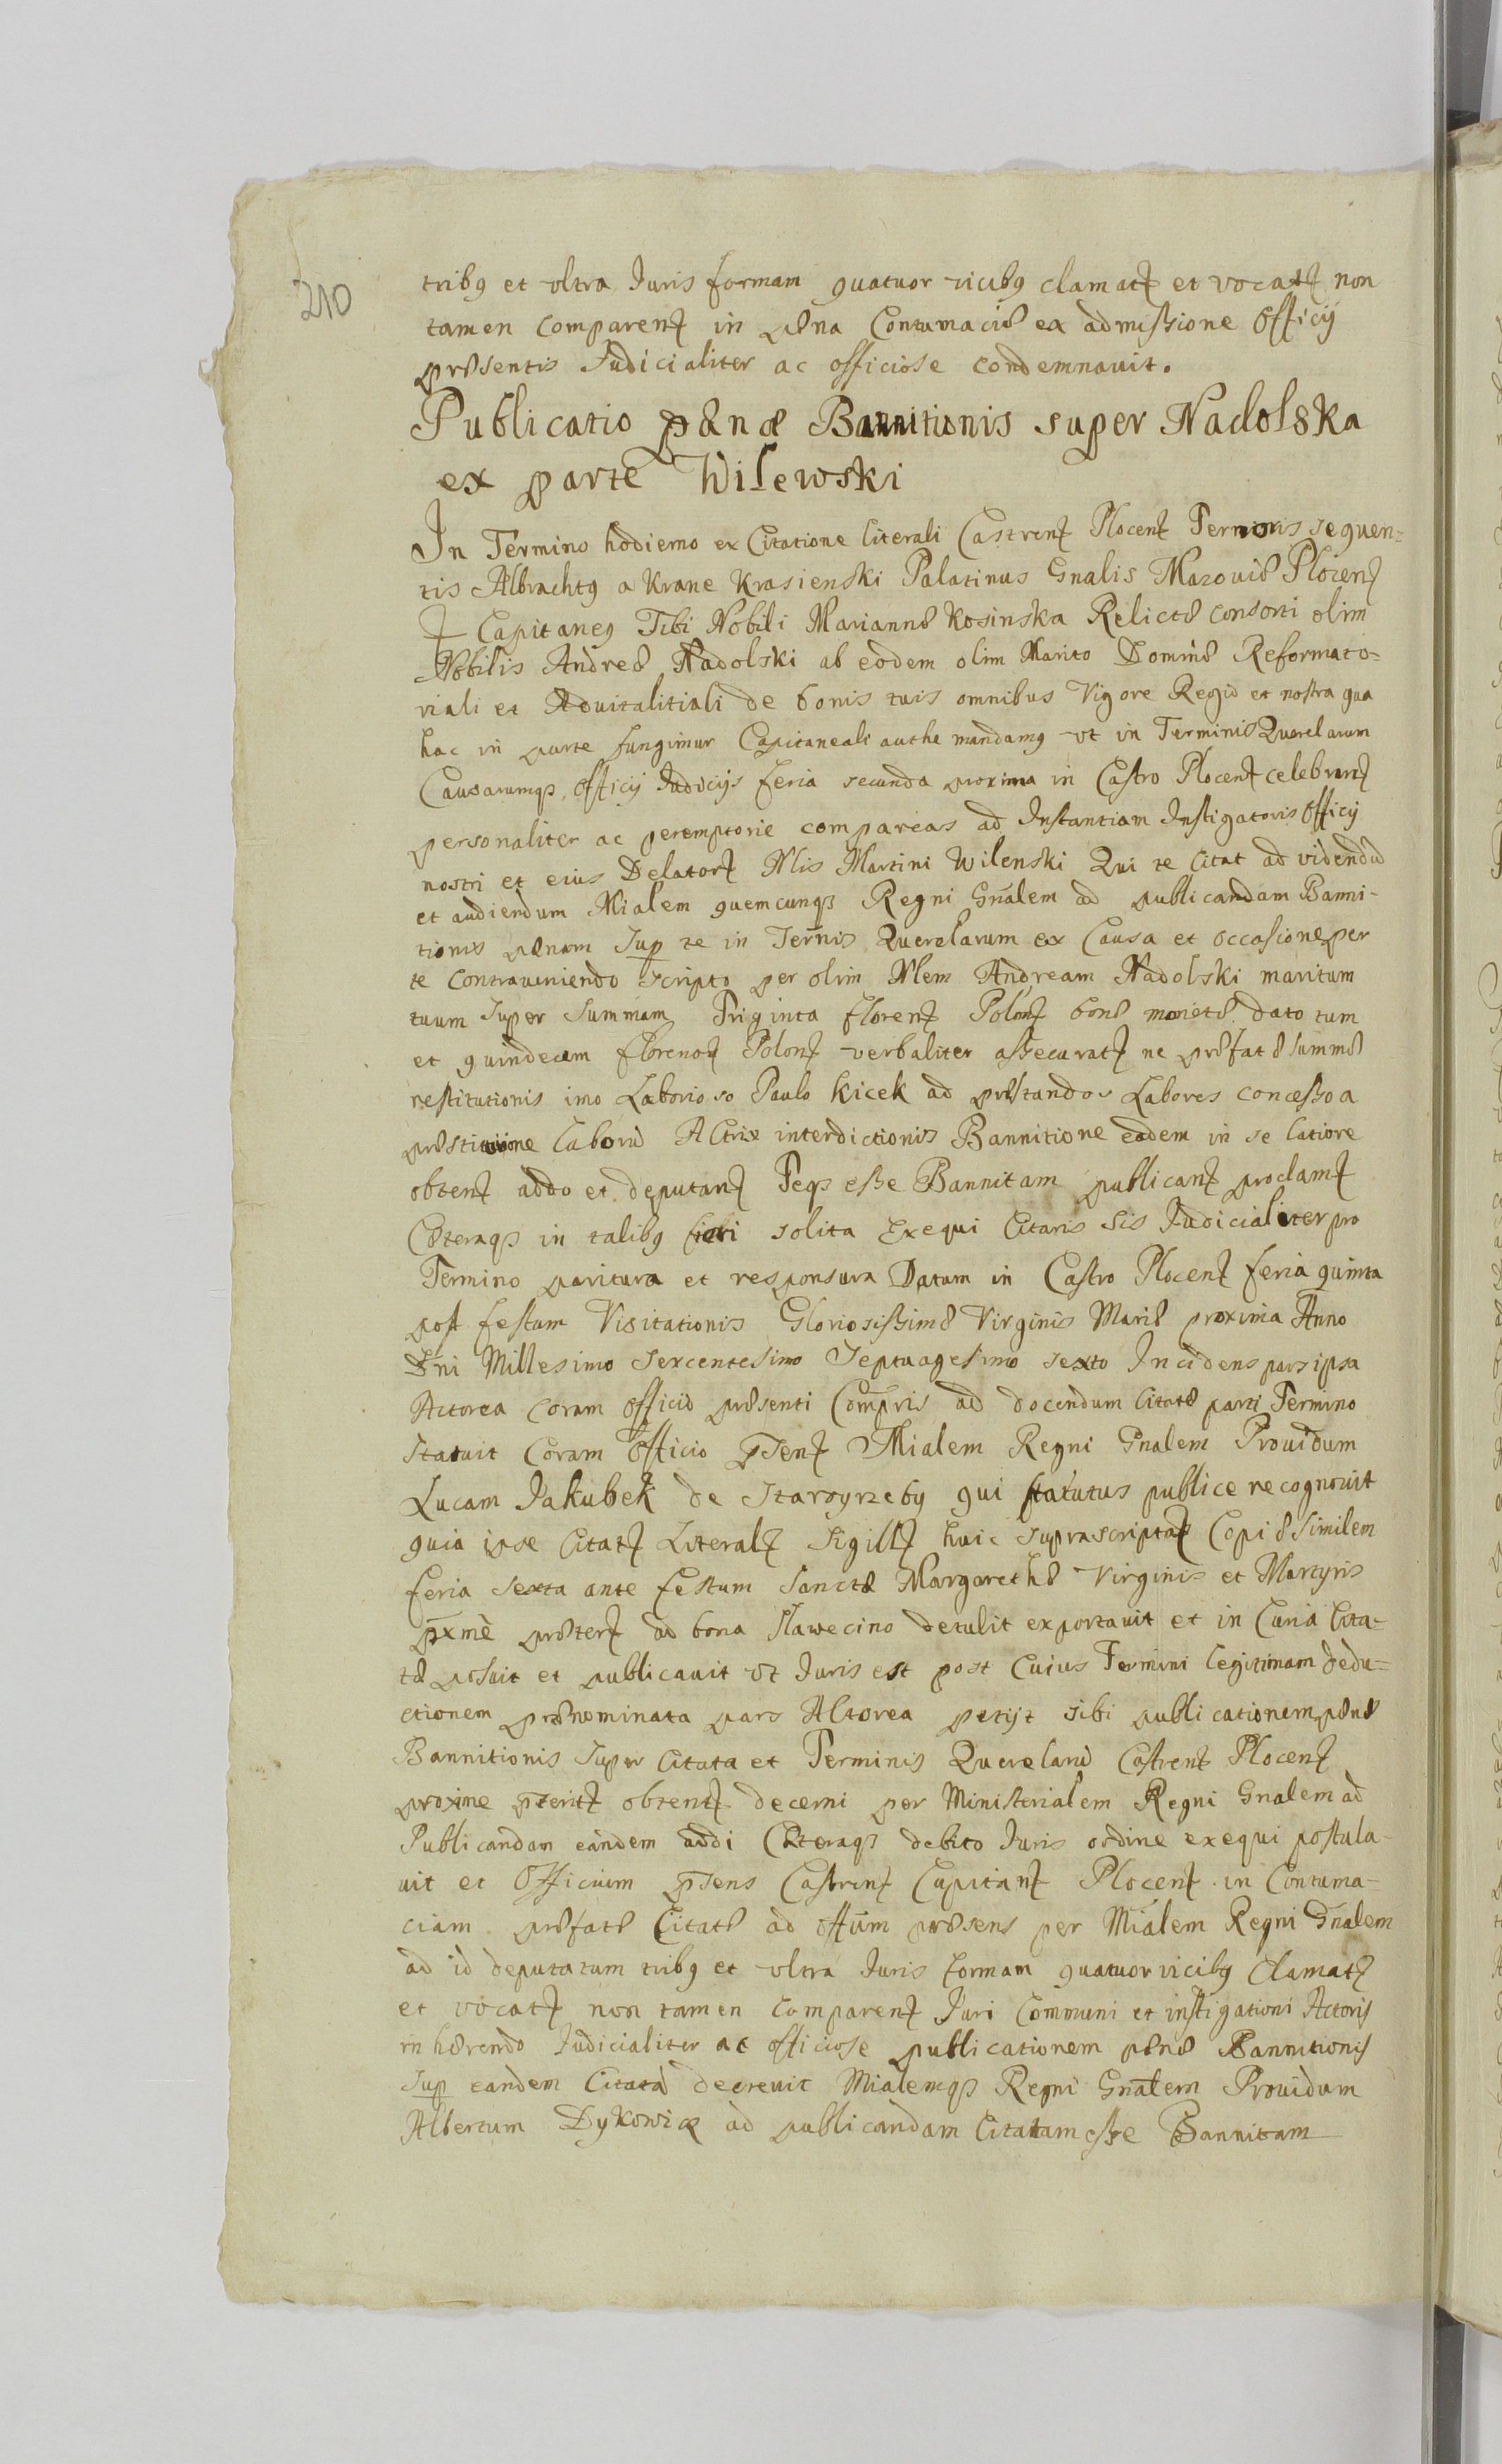 210
tribꝯ et vltra Juris formam quatuor vicibꝯ clamatꝭ et vocatꝭ non
tamen comparenꝭ in pœna Contumaciæ ex admissione Officij
præsentis Judicialiter ac officiose condemnauit.
Publicatio pænæ Bannitionis super Nadolska
ex parte Wilewski
In Termino hodierno ex Citatione literali Castrenꝭ Plocenꝭ Tenoris sequen=
tis Albrachtꝯ a Krane Krasienski Palatinus Gnalis Mazouiæ Plocenꝭ
Capitaneꝯ Tibi Nobili Mariannæ Kosinska Relictæ consorti olim
Nobilis Andreæ Nadolski ab eodem olim Marito Dominæ Reformato=
riali et Aduitalitiali de bonis tuis omnibus Vigore Regio et nostra qua
hac in parte fungimur Capitaneali authe mandamꝯ vt in Terminis Querelarum
Causarumqꝫ Officij Judicijs feria secunda proxima in Castro Plocenꝭ celebranꝭ
personaliter ac peremptorie compareas ad Instantiam Instigatoris Officij
nostri et eius Delatorꝭ Nlis Martini Wilenski Qui te Citat ad videndū
et audiendum Mialem quemcunqꝫ Regni Gnalem ad publicandam Banni-
tionis pœnam Sup te in Terñis Querelarum ex Causa et occasione per
te contraueniendo scripto per olim Nlem Andream Nadolski maritum
tuum Super Summam Triginta florenꝭ Polonꝭ bonæ monetæ dato tum
et quindecem florenoꝭ Polonꝭ verbaliter assecuratꝭ ne præfatæ summæ
restitutionis imo Laborioso Paulo Kicek ad præstandos Labores concesso a
præstitione laborū Actrix interdictionis Bannitione eadem in se latiore
obtenꝭ addo et deputanꝭ Teqꝫ esse Bannitam publicanꝭ proclamꝭ
Cæteraqꝫ in talibꝯ fieri solita Exequi Citaris Sis Judicialiter pro
Termino paritura et responsura Datum in Castro Plocenꝭ feria quinta
post festum Visitationis Gloriosissimæ Virginis Mariæ proxima Anno
Dni Millesimo Sexcentesimo Septuagesimo sexto Incidens pars ipsa
Actorea coram officio præsenti Compris ad docendum Citatæ parti Termino
Statuit Coram Officio Pntenꝭ Mialem Regni Gnalem Prouidum
Lucam Jakubek de Staroyrzeby qui statutus publice recognouit
quia ipse Citatꝭ Literalꝭ Sigillꝭ huic suprascriptæ Copiæ similem
feria sexta ante festum Sanctæ Margarethæ Virginis et Martyris
pxmè præterꝭ ad bona Slawecino detulit exportauit et in Curia Cita=
tæ posuit et publicauit vt Juris est post Cuius Termini legitimam dedu=
ctionem prænominata pars Actorea petijt sibi publicationem pœnæ
Bannitionis Super Citata et Terminis Querelarū Castrenꝭ Plocenꝭ
proxime pteritꝭ obtentꝭ decerni per Ministerialem Regni Gnalem ad
Publicandam eandem addi Cæteraqꝫ debito Juris ordine exequi postula-
uit et Officium pñsens Castrenꝭ Capitanꝭ Plocenꝭ in Contuma-
ciam præfatæ Citatæ ad offūm præsens per Mialem Regni Gnalem
ad id deputatum tribꝯ et vltra Juris formam quatuor vicibꝯ Clamatꝭ
et vocatꝭ non tamen Comparenꝭ Juri Communi et instigationi Actoris
inhærendo Judicialiter ac officiose publicationem pœnæ Bannitionis
Sup eandem Citatā decreuit Mialemqꝫ Regni Gnalem Prouidum
Albertum Dykowicz ad publicandam Citatam esse Bannitam